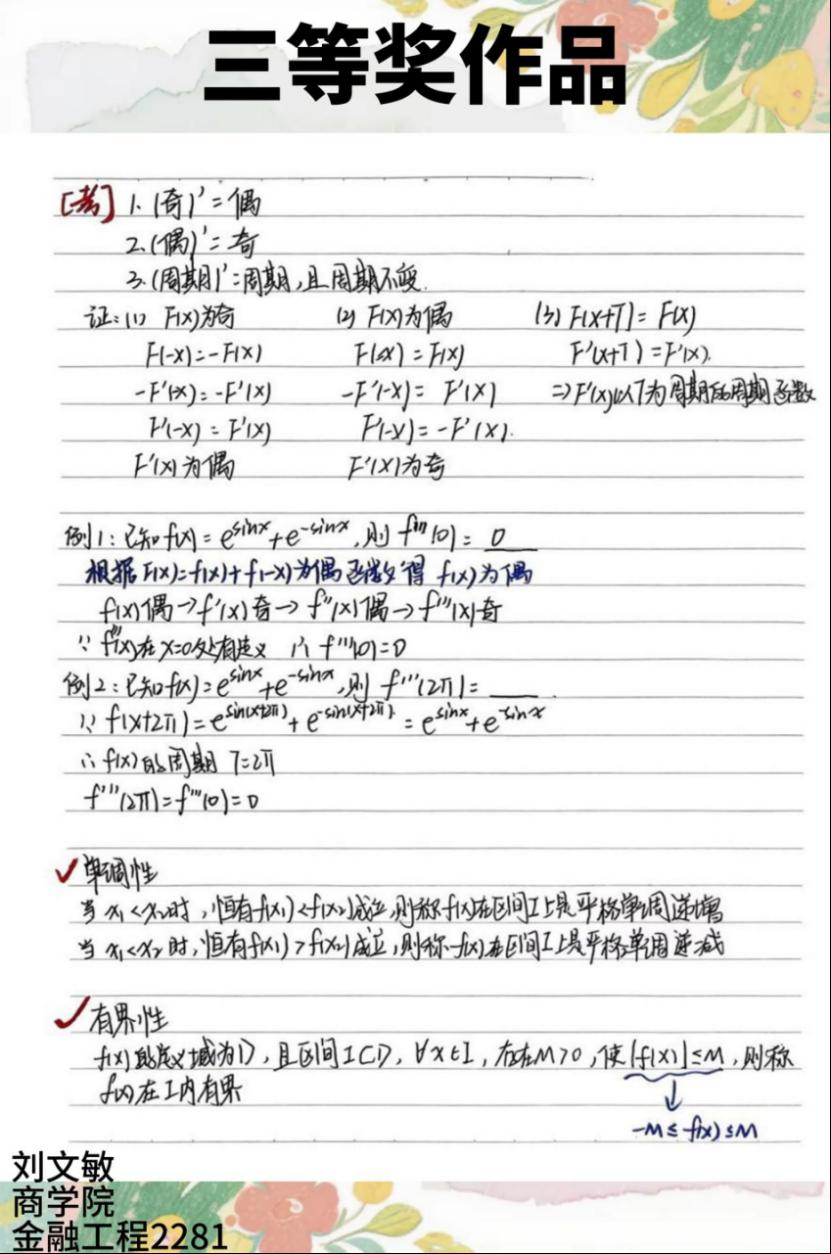 三等奖作品
[考] 1. (奇)' = 偶
2. (偶)' = 奇
3. (周期)' = 周期, 且周期不变.
证: (1) F(x)为奇 (2) F(x)为偶 (3) F(x+T) = F(x)
F(-x) = -F(x) F(-x) = F(x) F'(x+T) = F'(x).
-F'(-x) = -F'(x) -F'(-x) = F'(x) ⇒ F'(x)以T为周期的周期函数
F'(-x) = F'(x) F'(-x) = -F'(x).
F'(x)为偶 F'(x)为奇
例1: 已知f(x) = e^{sinx} + e^{-sinx}, 则 f'''(0) = 0
根据F(x)=f(x)+f(-x)为偶函数 得 f(x)为偶
f(x)偶 → f'(x)奇 → f''(x)偶 → f'''(x)奇
∵ f'''(x)在x=0处有定义 ∴ f'''(0)=0
例2: 已知f(x) = e^{sinx} + e^{-sinx}, 则 f'''(2π) = ____.
∵ f(x+2π) = e^{sin(x+2π)} + e^{-sin(x+2π)} = e^{sinx} + e^{-sinx}
∴ f(x)的周期 T=2π
f'''(2π) = f'''(0) = 0
✓ 单调性
当 x₁<x₂时, 恒有f(x₁)<f(x₂)成立, 则称f(x)在区间I上是严格单调递增
当 x₁<x₂时, 恒有f(x₁)>f(x₂)成立, 则称f(x)在区间I上是严格单调递减
✓ 有界性
f(x)的定义域为D, 且区间I⊂D, ∀x∈I, 存在M>0, 使|f(x)|≤M, 则称
f(x)在I内有界
↓
-M ≤ f(x) ≤ M
刘文敏
商学院
金融工程2281